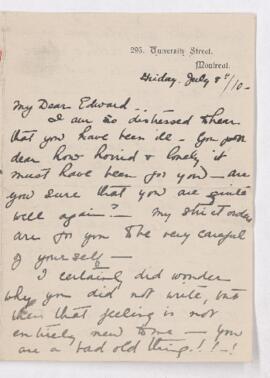 295, University Street,
Montreal.
Friday. July 8th/10-
My Dear Edward...
I am so distressed to hear
that you have been ill - You poor
dear how horrid & lonely it
must have been for you - are
you sure that you are quite
well again? - My strict orders
are for you to be very careful
of yourself -
I certainly did wonder
why you did not write, but
then that feeling is not
entirely new to me - you
are a bad old thing!!-!